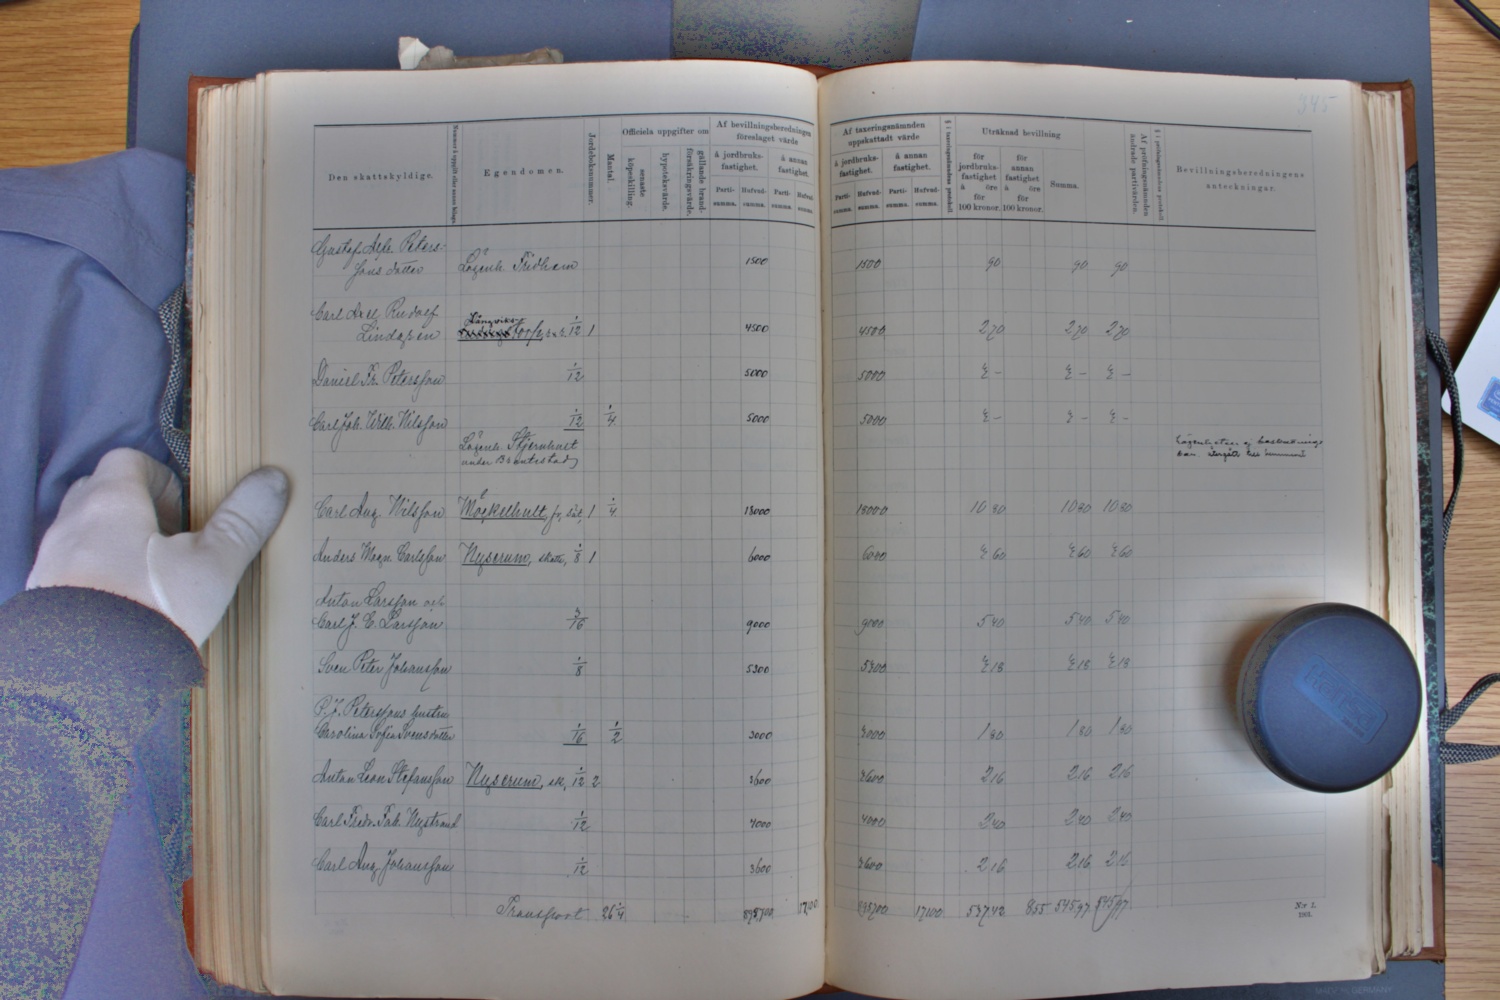 345
Den skattskyldige.
Nummer å uppgift eller annan bilaga.
Egendomen.
Jordeboksnummer.
Mantal.
Officiela uppgifter om
senaste köpeskilling.
hypoteksvärde.
gällande brandförsäkringsvärde.
Af bevillningsberedningen föreslaget värde
å jordbruksfastighet.
å annan fastighet.
Partisumma.
Hufvudsumma.
Partisumma.
Hufvudsumma.
Af taxeringsnämnden uppskattadt värde
å jordbruksfastighet.
å annan fastighet.
Partisumma.
Hufvudsumma.
Partisumma.
Hufvudsumma.
§ i taxeringsnämndens protokoll.
Uträknad bevillning
för jordbruksfastighet à öre för 100 kronor.
för annan fastighet à öre för 100 kronor.
Summa.
Af pröfningsnämnden ändrade partivärden.
§ i pröfningsnämndens protokoll.
Bevillningsberedningens anteckningar.
Gustaf Alfr. Peters-
sons dotter Lägenh. Fridhem 1500 1500 90 90 90
Carl Axel Rudolf
Långviks-
Lindgren torp, 1/12 1 4500 4500 270 270 270
Daniel Fr. Petersson 1/12 5000 5000 3 – 3 – 3 –
Carl Joh. Wilh. Nilsson 1/12 1/4 5000 5000 3 – 3 – 3 –
Lägenh. Stjernhult
under
Carl Aug. Nilsson Möckelhult, fr. sät. 1 1/4 18000 18000 1080 1080 1080
Anders Magn. Carlsson Nyserum, skatte, 1/8 1 6000 6000 3 60 3 60 3 60
Anton Larsson och
Carl J. E. Larsson 3/16 9000 9000 540 540 540
Sven Peter Johansson 1/8 5300 5300 3 18 3 18 3 18
P. J. Peterssons hustru
Carolina Sofia Svensdotter 1/16 1/2 3000 3000 180 180 180
Anton Leon. Stefansson Nyserum, sk, 1/12 2 3600 3600 216 216 216
Carl Fredr. Fab. Nystrand 1/12 4000 4000 240 240 240
Carl Aug. Johansson 1/12 3600 3600 216 216 216
Transport 26 1/4 895700 17100 895700 17100 537,42 8,55 545,97 545,97
N:r 1.
1901.
MADE IN GERMANY